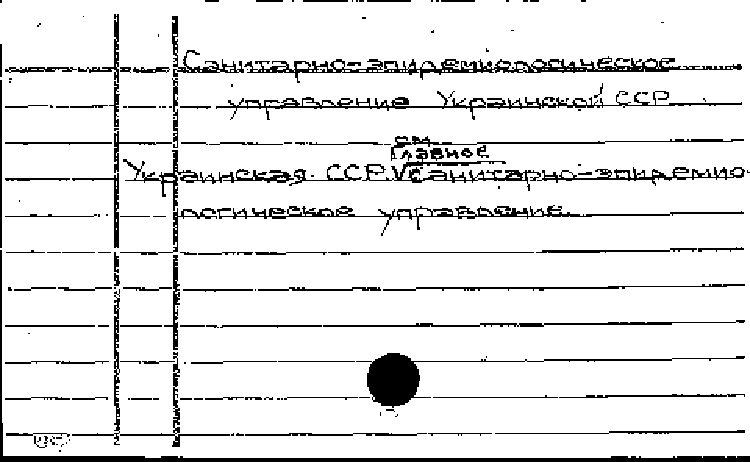 Санитарно-эпидемиологическое
управление Украинской ССР
см.
Главное
Украинская ССР. V Санитарно-эпидемио-
логическое управление.